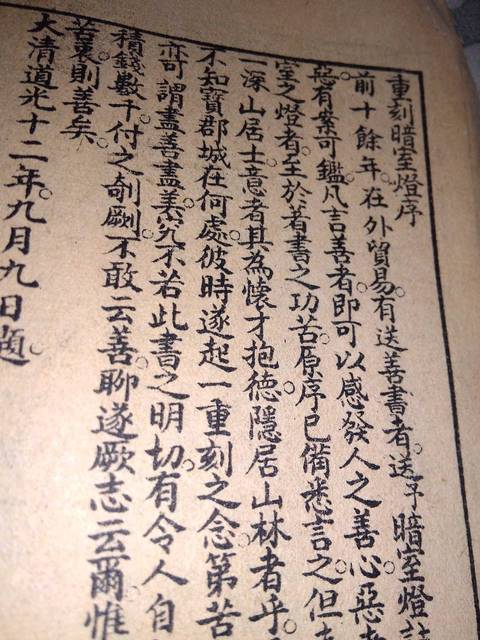 重刻暗室燈序
前十餘年在外貿易。有送善書者。送予暗室燈
惡有案可鑑。凡言善者。即可以感發人之善心。惡
室之燈者。至於著書之功苦。原序已備悉言之。但
一深山居士。意者其為懷才抱德。隱居山林者乎。
不知寶郡城在何處。彼時遂起一重刻之念。第苦
亦可謂盡善盡美。究不若此書之明切。有令人自
積錢數千。付之剞劂。不敢云善。聊遂厥志云爾。惟
苦衷。則善矣。
大清道光十二年。九月九日題。